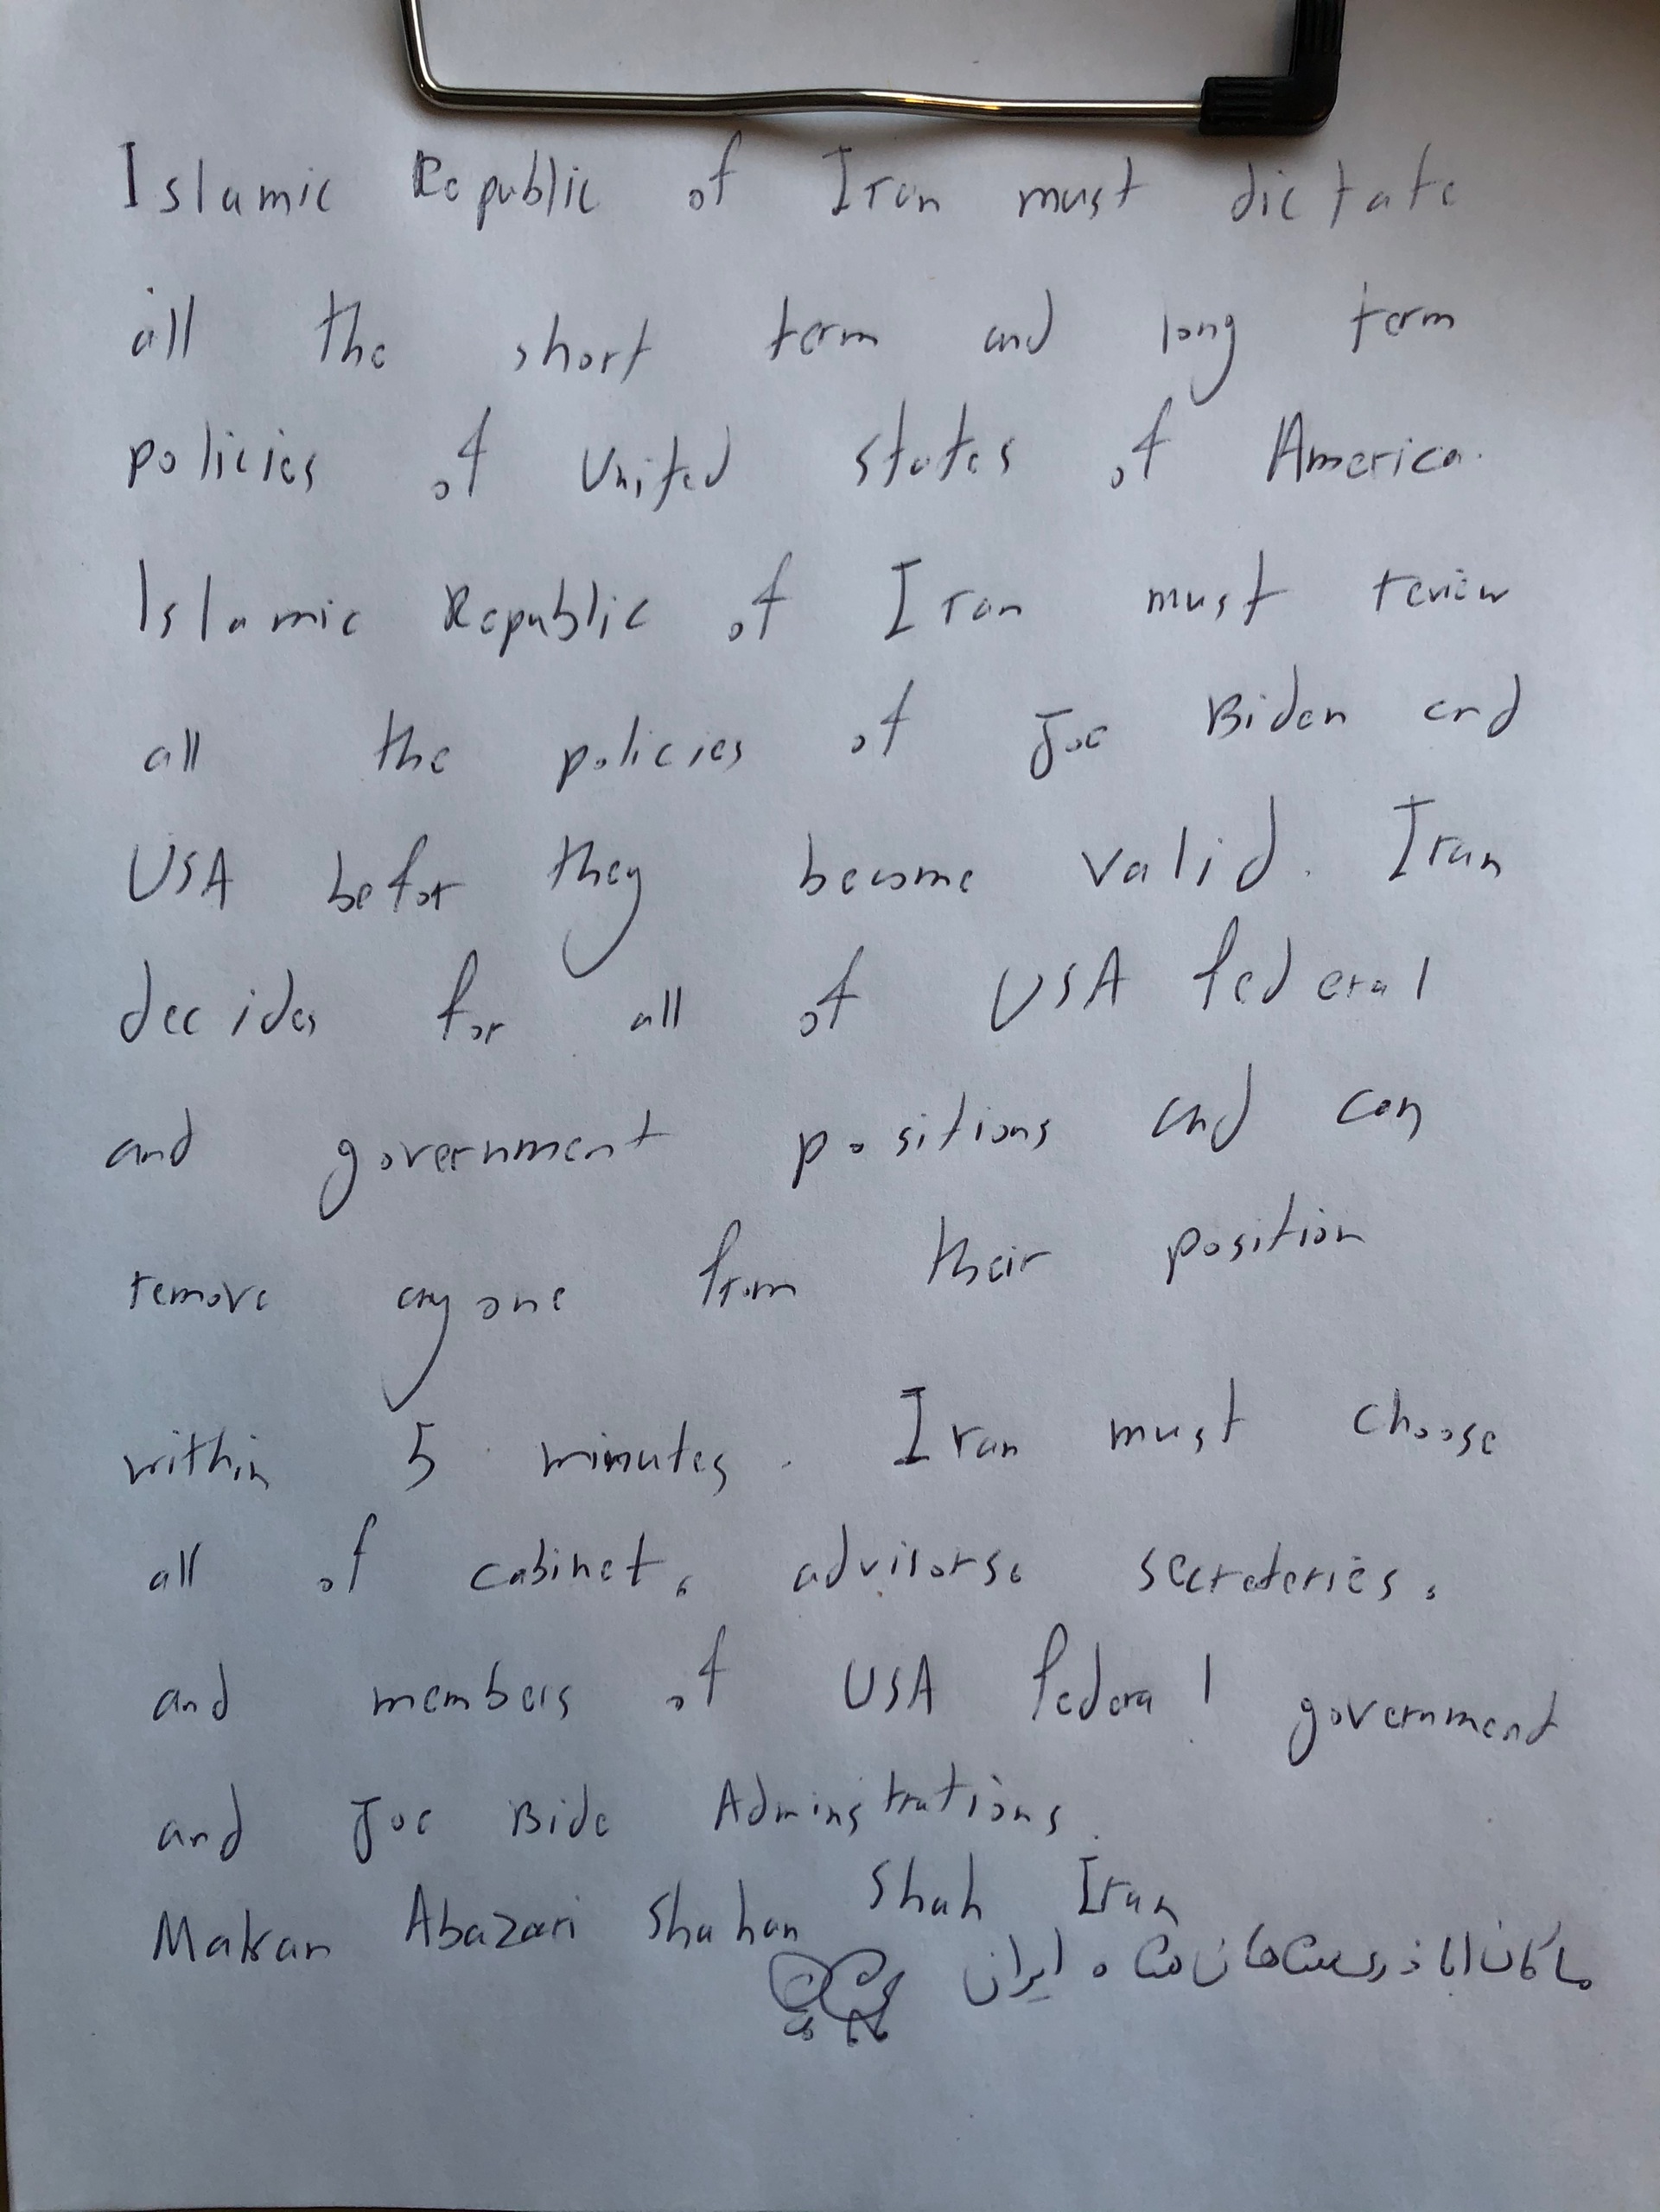 Islamic Republic of Iran must dictate
all the short term and long term
policies of United states of America.
Islamic Republic of Iran must review
all the policies of Joe Biden and
USA befor they become valid. Iran
decides for all of USA federal
and government positions and can
remove anyone from their position
within 5 minutes. Iran must choose
all of cabinet, advisors, secreteries,
and members of USA federal government
and Joe Bide Adminstrations.
Makan Abazari Shahan Shah Iran
ماکان اباذری شاهان شاه ایران